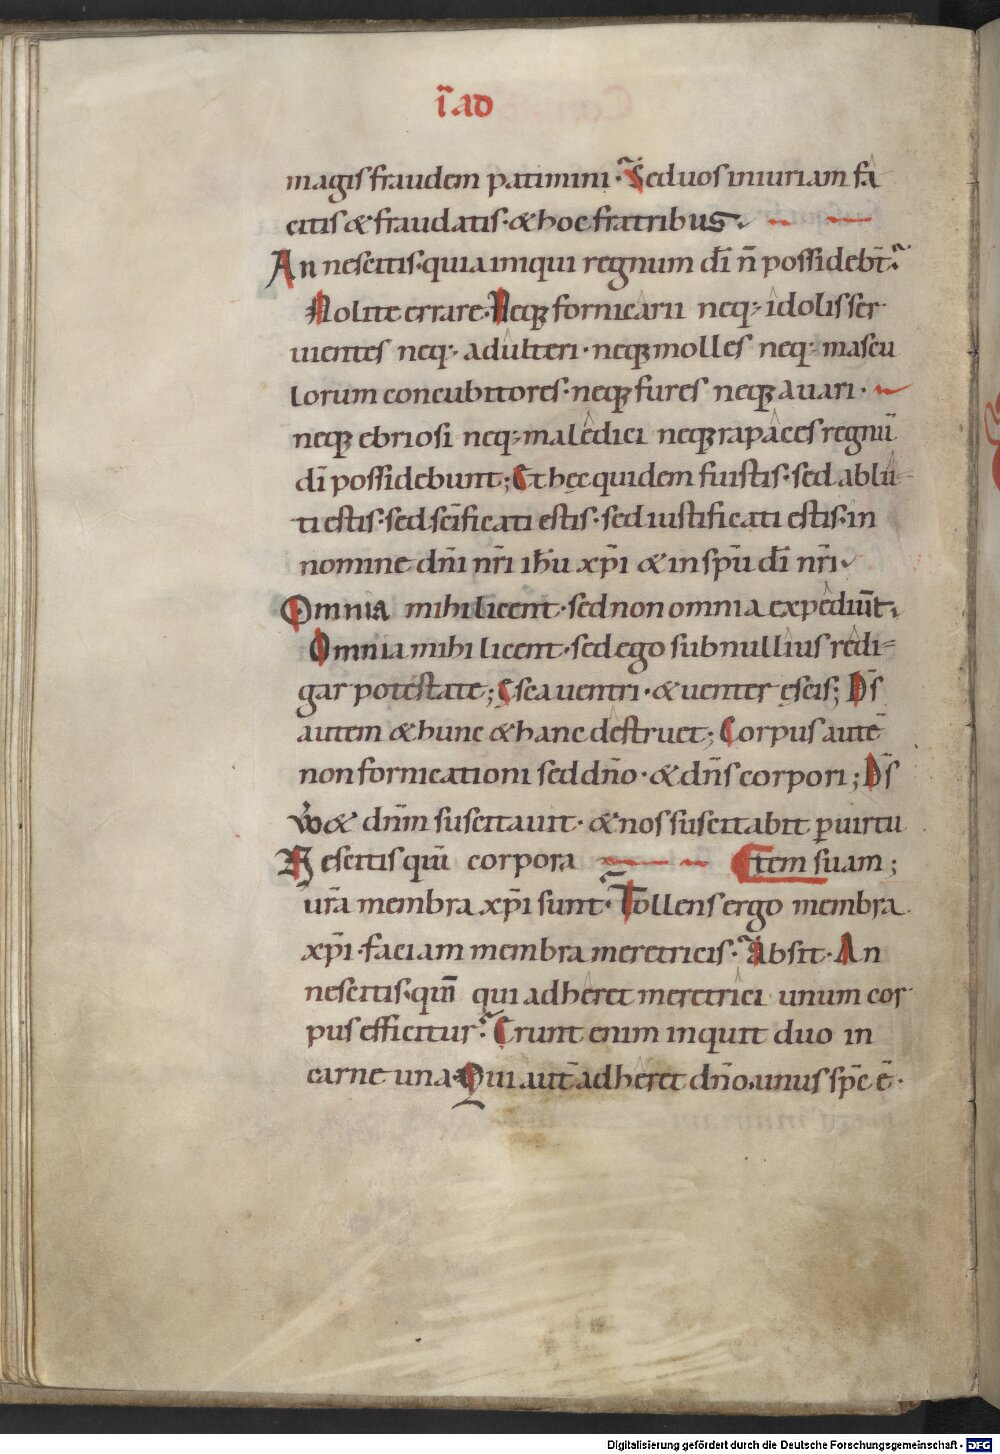 I ad
magis fraudem patimini· Sed uos iniuriam fa
citis & fraudatis· & hoc fratribus·
An nescitis· quia iniqui regnum dī n̄ possidebt̄·
Nolite errare· Neq; fornicarii neq; idolis ser
uientes neq; adulteri· neq; molles neq; mascu
lorum concubitores· neq; fures neq; auari·
neq; ebriosi neq; maledici neq; rapaces regnū
dī possidebunt; Et hęc quidem fuistis· sed ablu
ti estis· sed sc̄ificati estis· sed iustificati estis· in
nomine dn̄i nr̄i ih̄u xp̄i & in sp̄u dī nr̄i·
Omnia mihi licent· sed non omnia expediūt·
Omnia mihi licent· sed ego sub nullius redi=
gar potestate; Esca uentri· & uenter ęscis; Ds̄
autem & hunc & hanc destruet; Corpus autē
non fornicationi sed dn̄o· & dn̄s corpori; Ds̄
uō & dn̄m suscitauit· & nos suscitabit ꝑ uirtu
Nescitis qm̄ corpora tem suam;
ur̄a membra xp̄i sunt· Tollens ergo membra
xp̄i· faciam membra meretricis· Absit· An
nescitis· qm̄ qui adheret meretrici unum cor
pus efficitur· Erunt enim inquit duo in
carne una· Qui aut̄ adheret dn̄o· unus sp̄c ē·
Digitalisierung gefördert durch die Deutsche Forschungsgemeinschaft - DFG